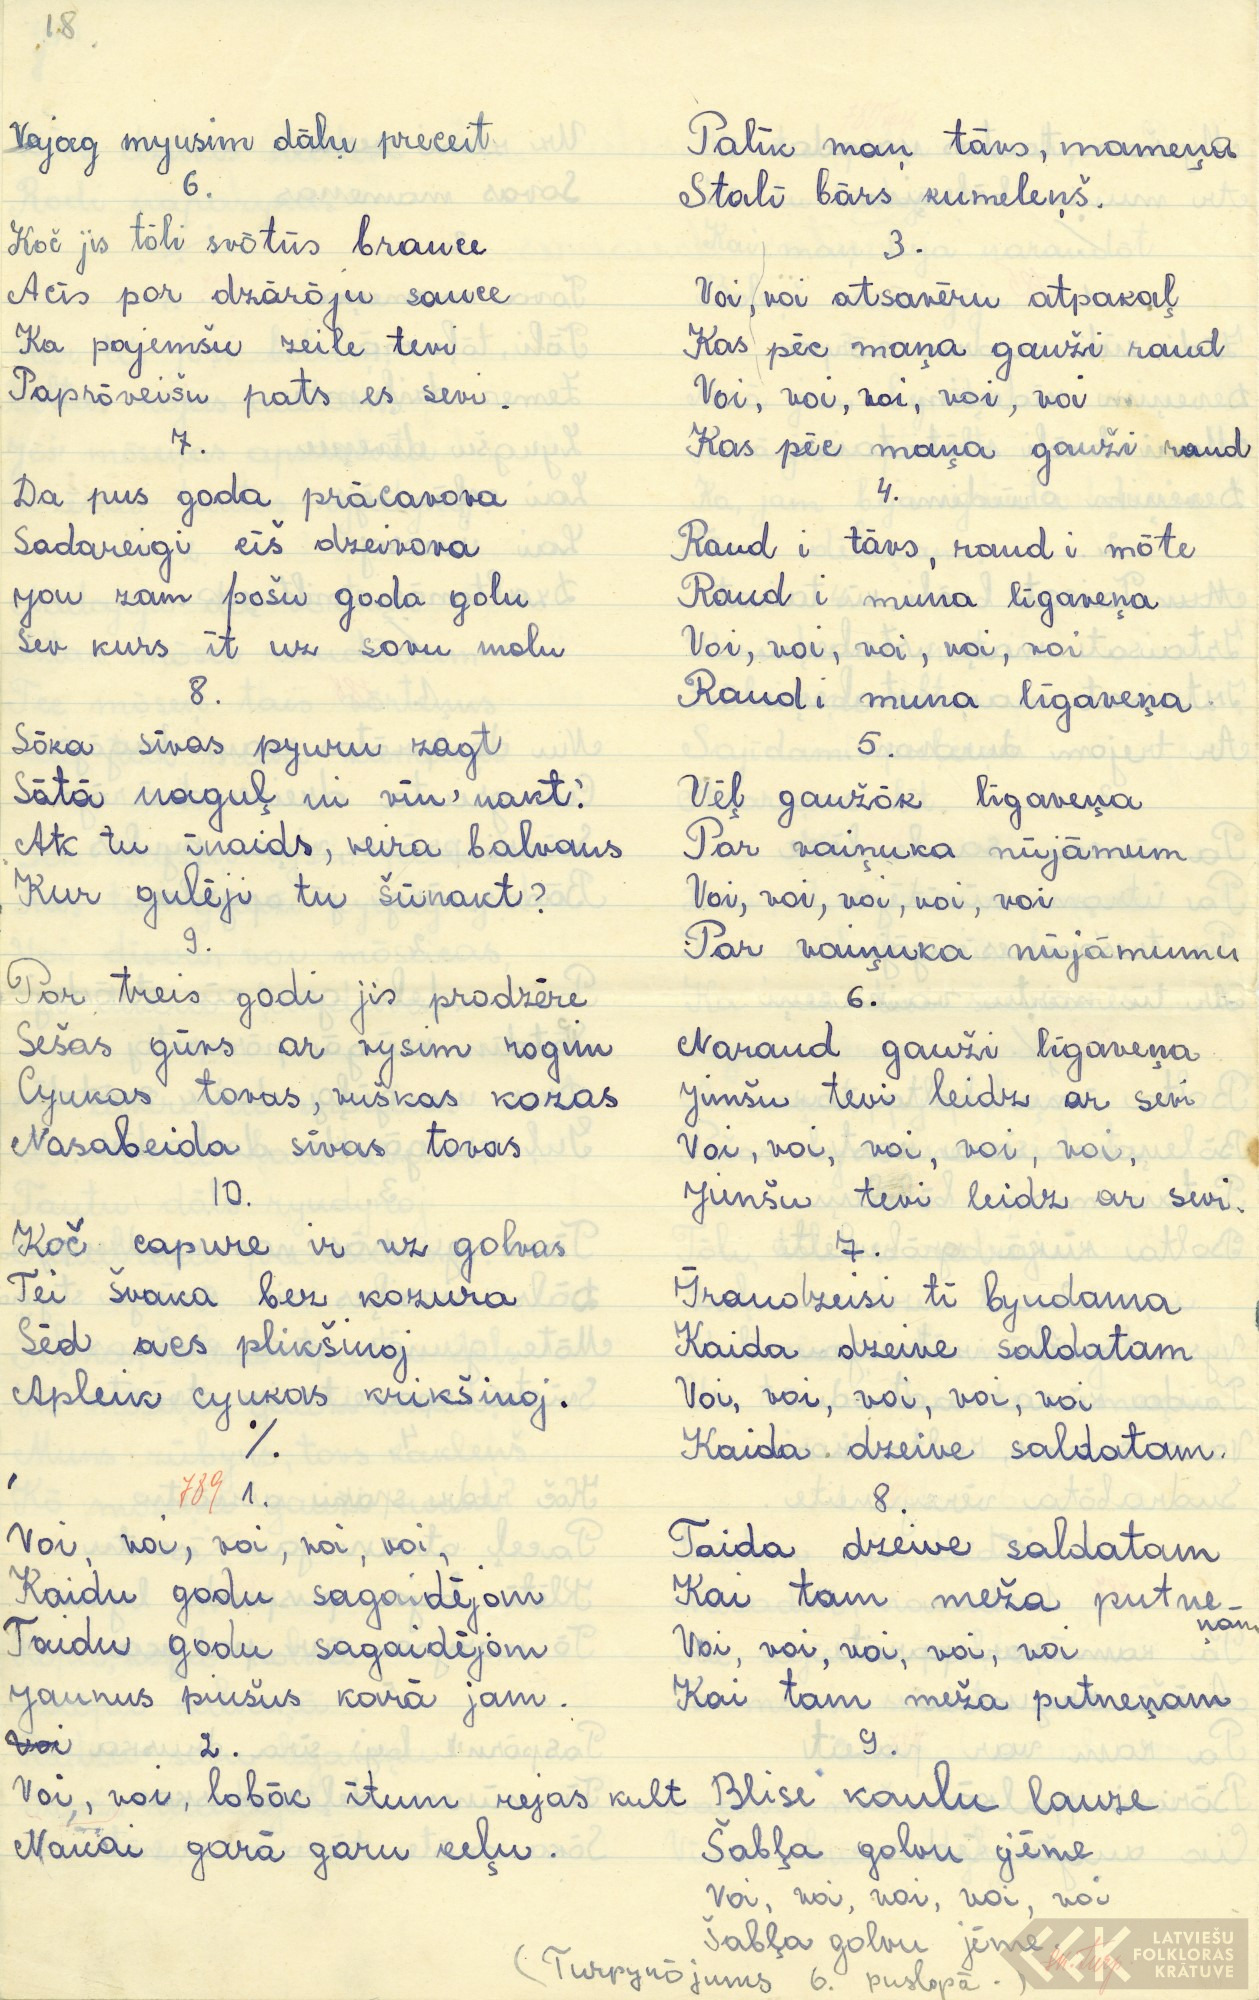 18
Vajag myusim dālu preceit
6.
Koč jis tōli svōtūs brauce
Acīs por dzārōju sauce
Ka pajemšu zeile tevi
Paprōveišu pats es sevi.
7.
Da pus goda prācavova
Sadareigi eiš dzeivova
you zam pošu goda golu
Sev kurs īt uz sovu molu
8.
Sōka sīvas pyuru zagt
Sātā naguļ ni vīn' nakt!
Ak tu īnaids, veira balvans
Kur gulēji tu šūnakt?
9.
Por treis godi jis prodzēre
Sešas gūvs ar vysim rogim
Cyukas tovas, viškas kozas
Nasabeida sīvas tovas
10.
Koč capure ir uz golvas
Tei švaka bez kozura
Sēd acs plikšinoj
Apleik cyukas krikšinoj.
%.
789 1.
Voi, voi, voi, voi, voi,
Kaidu godu sagaidējom
Taidu godu sagaidējom
Jaunus pušus karā jam.
Voi 2.
Voi, voi, lobōk ītum rejās kult
Nauai garā garu ceļu.
Palīk maņ tāvs, mameņa
Stalī bārs kumeleņš.
3.
Voi, voi atsavēru atpakaļ
Kas pēc maņa gauži raud
Voi, voi, voi, voi, voi
Kas pēc maņa gauži raud
4.
Raud i tāvs, raud i mōte
Raud i muna līgaveņa
Voi, voi, voi, voi, voi
Raud i muna līgaveņa.
5.
Vēļ gaužōk līgaveņa
Par vaiņuka nūjāmum
Voi, voi, voi, voi, voi
Par vaiņuka nūjāmumu
6.
Naraud gauži līgaveņa
Jimšu tevi leidz ar sevi
Voi, voi, voi, voi, voi,
Jimšu tevi leidz ar sevi.
7.
Īraudzeisi tī byudama
Kaida dzeive saldatam
Voi, voi, voi, voi, voi
Kaida dzeive saldatam.
8.
Taida dzeive saldatam
Kai tam meža putne-
ņam
Voi, voi, voi, voi, voi
Kai tam meža putneņam
9.
Blise kaulu lauze
Šabļa golvu jēme
Voi, voi, voi, voi, voi
Šabļa golvu jēme
(Turpynōjums 6. puslopā.)
LATVIEŠU
FOLKLORAS
KRĀTUVE